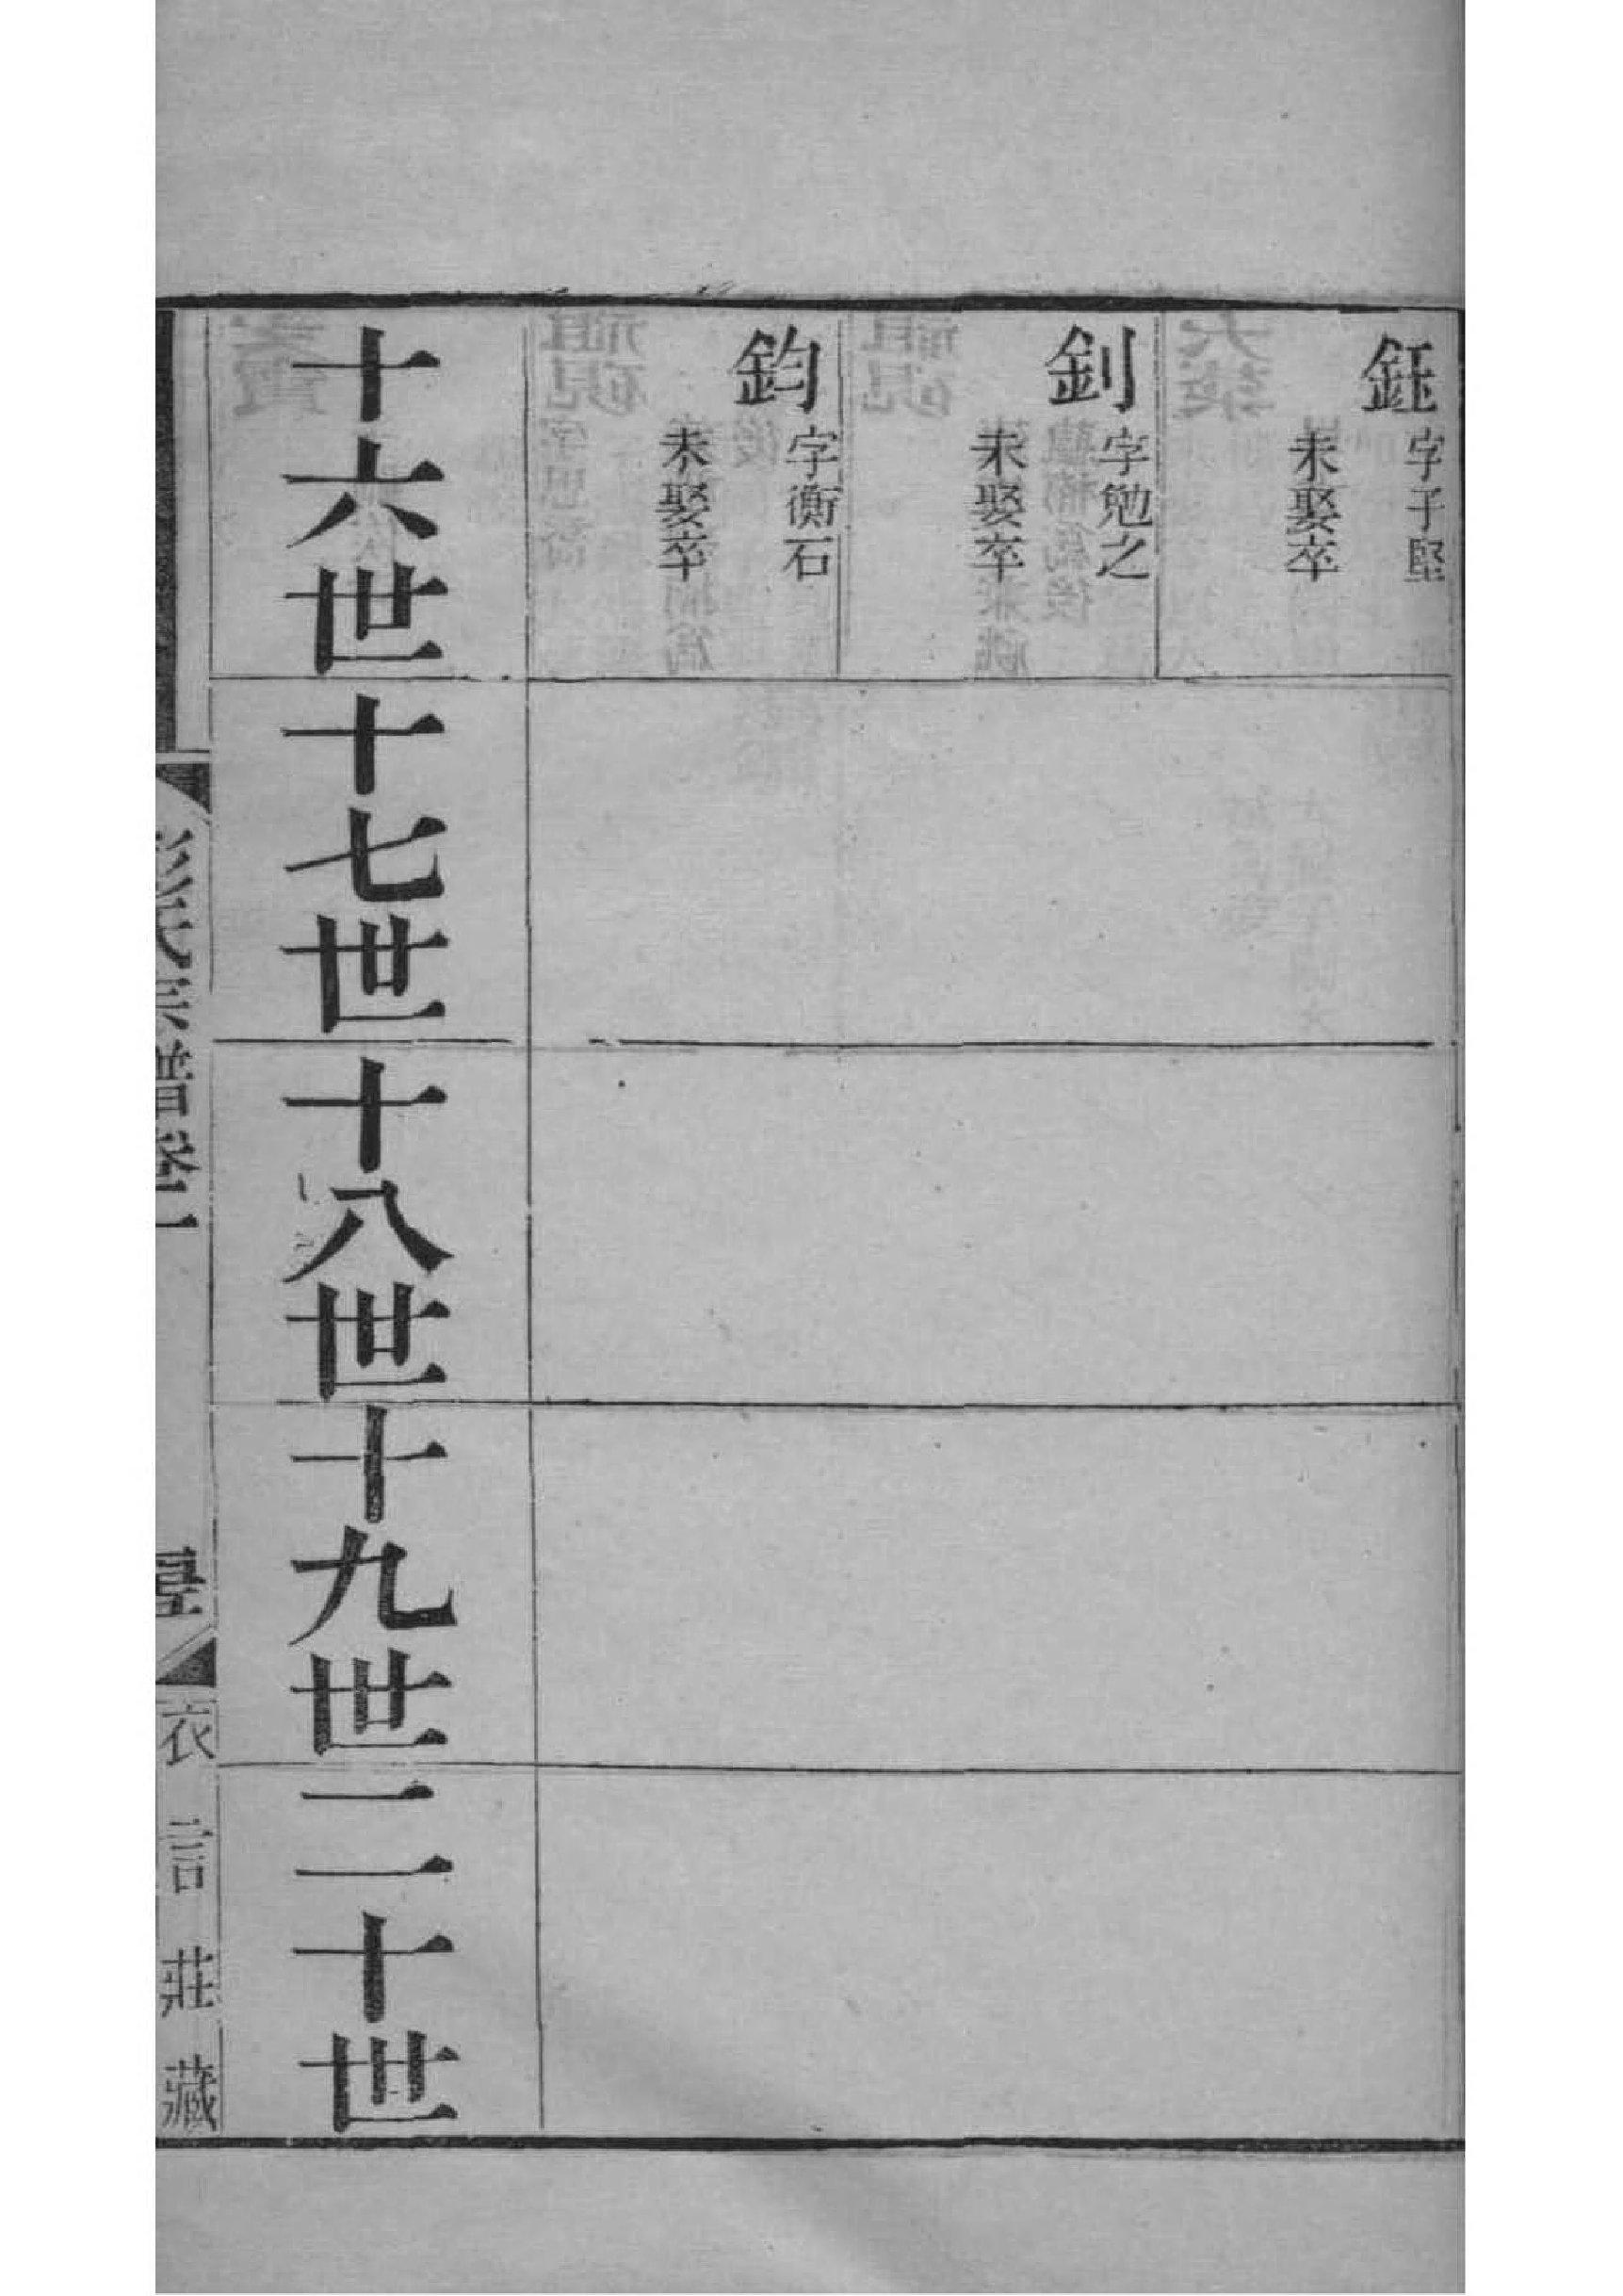 鈺
字子堅
未娶卒
釗
字勉之
未娶卒
鈞
字衡石
未娶卒
十六世
十七世
十八世
十九世
二十世
彭氏宗譜卷一
衣言莊藏